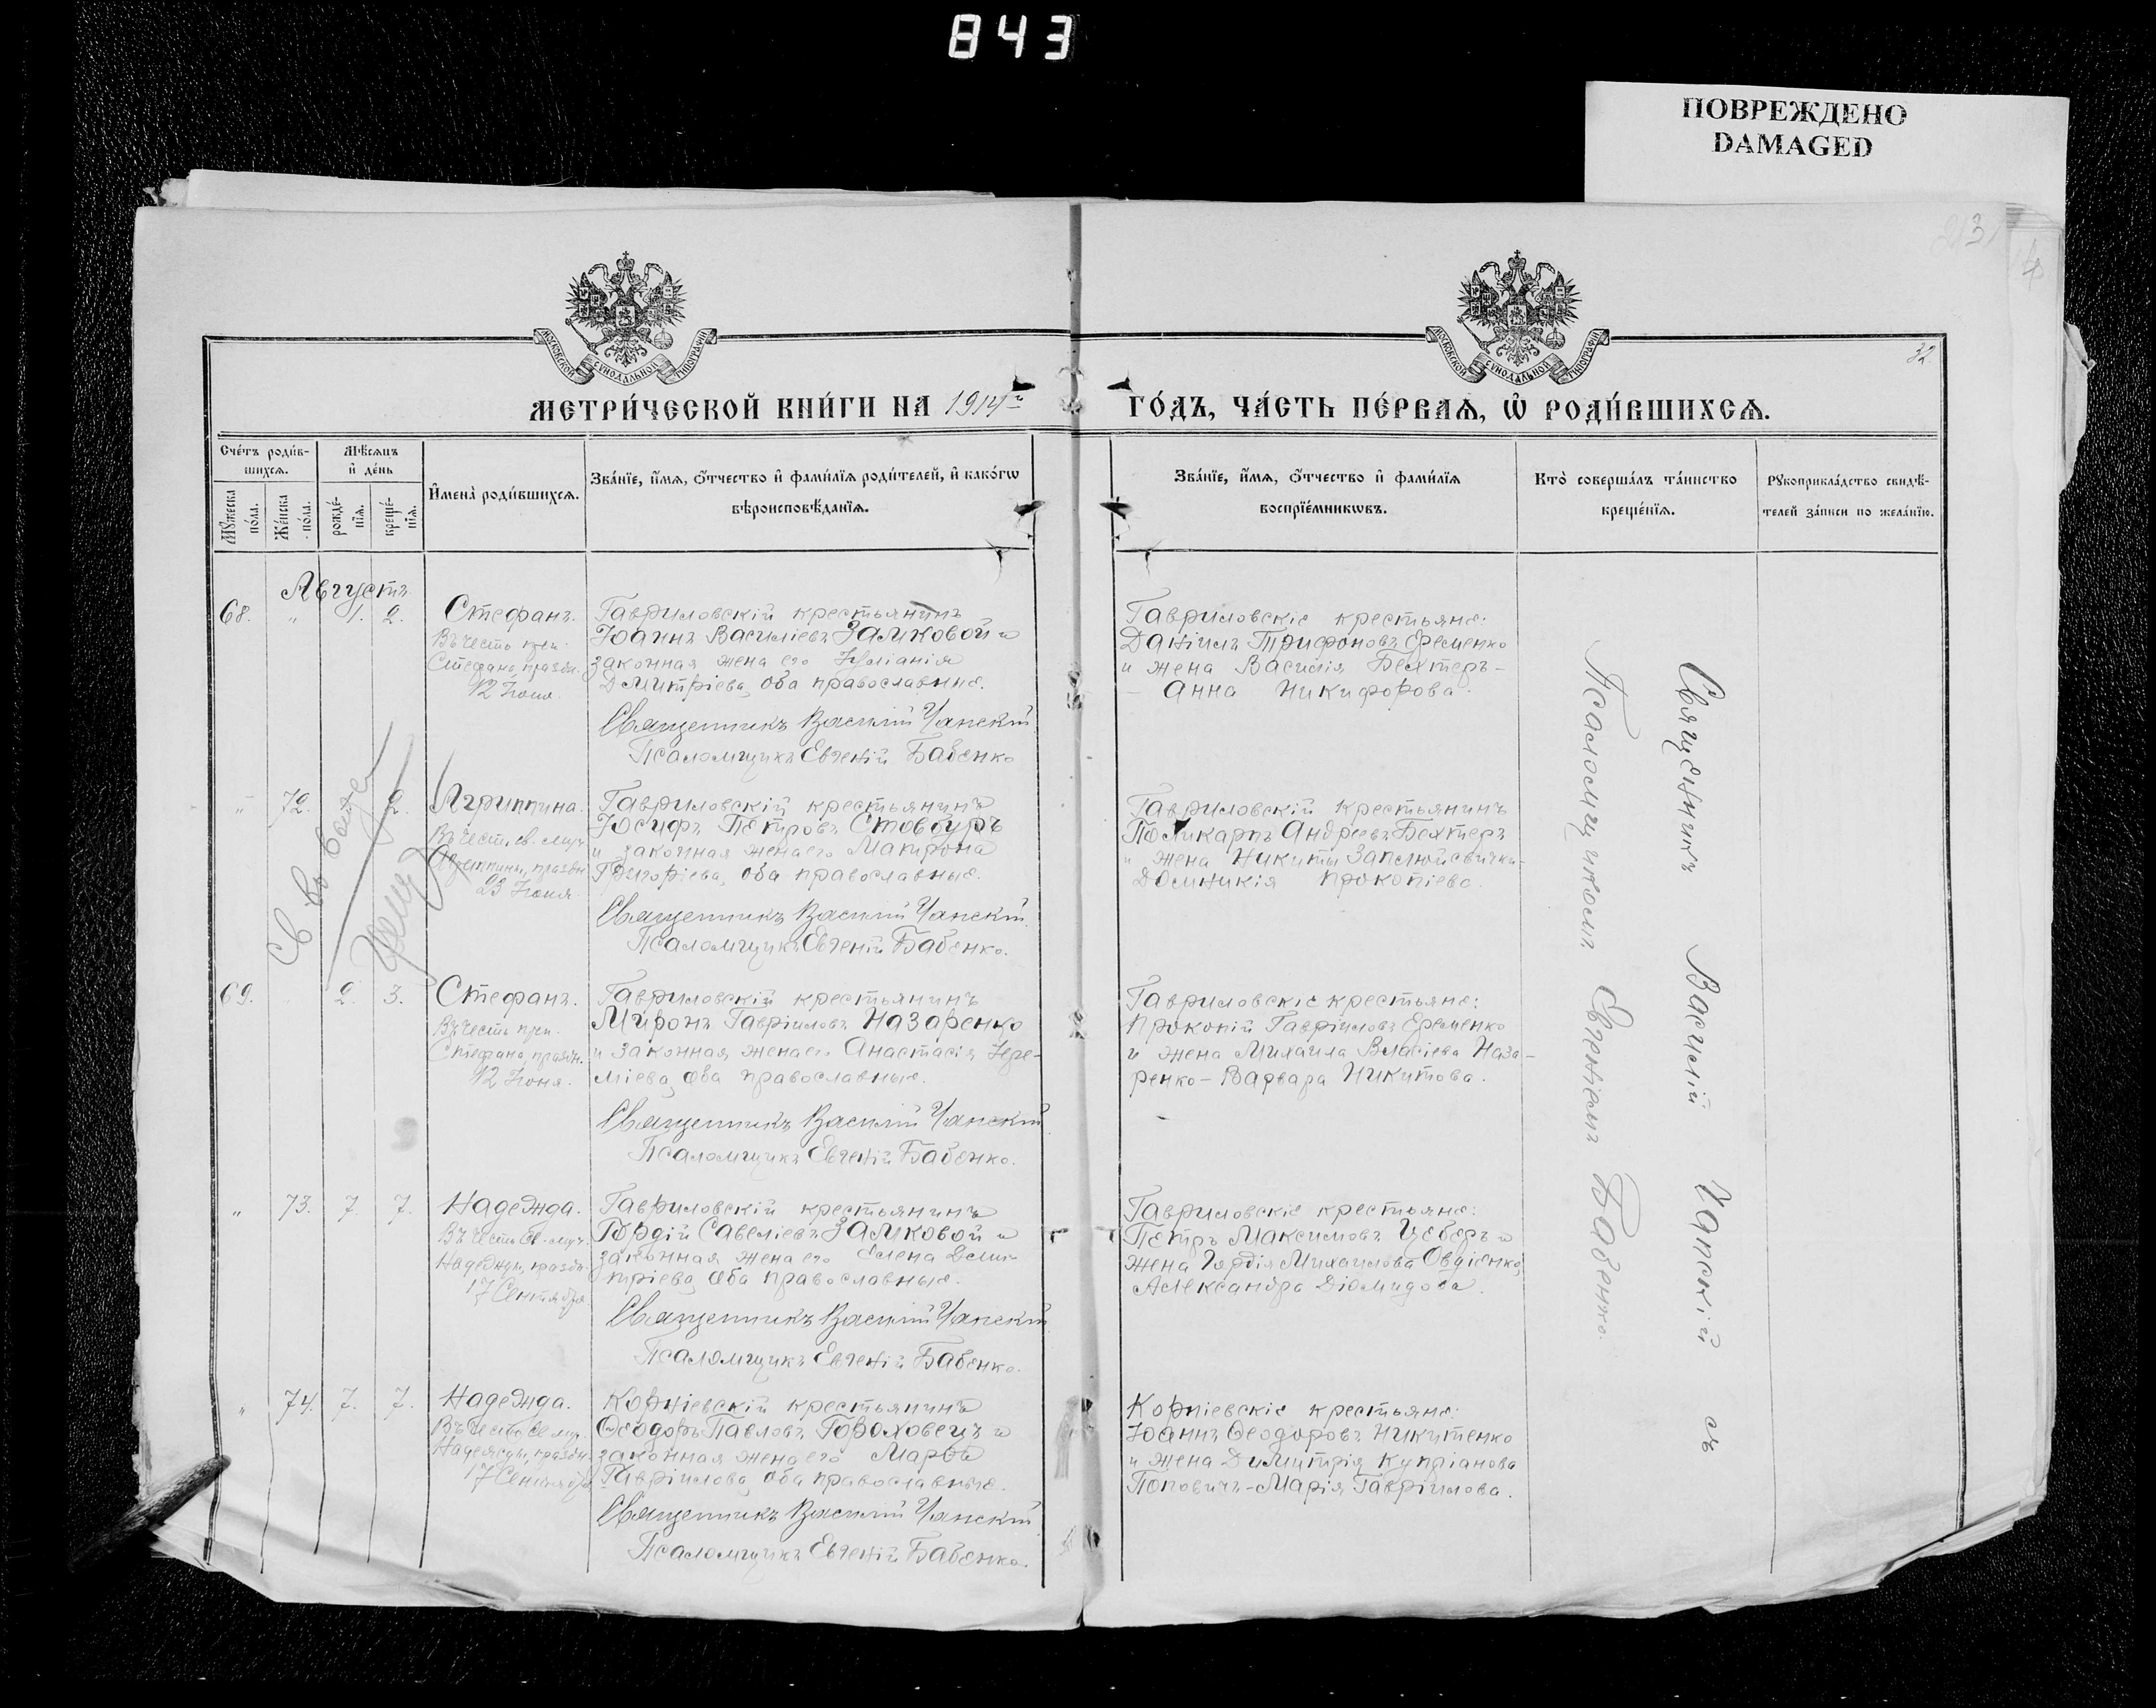 843
ПОВРЕЖДЕНО
DAMAGED
32
МОСКОВСКОЙ СѴНОДАЛЬНОЙ ТИПОГРАФІИ
МОСКОВСКОЙ СѴНОДАЛЬНОЙ ТИПОГРАФІИ
МЕТРИ́ЧЕСКОЙ КНИ́ГИ НА 1914й ГО́ДЪ, ЧА́СТЬ ПЕ́РВАѦ, Ѡ҆ РОДИ́ВШИХСѦ.
Сче́тъ роди́в-
шихсѧ.
Мꙋ́жеска по́ла.
Же́нска по́ла.
Мѣ́сѧцъ
и҆ де́нь
рожде́-
нїѧ.
креще́-
нїѧ.
И҆мена̀ роди́вшихсѧ.
Зва́нїе, и҆́мѧ, ѻ҆́тчество и҆ фами́лїѧ роди́телей, и҆ како́гѡ
вѣроисповѣ́данїѧ.
Зва́нїе, и҆́мѧ, ѻ҆́тчество и҆ фами́лїѧ
воспрїе́мникѡвъ.
Кто̀ соверша́лъ та́инство
креще́нїѧ.
Рꙋкоприкла́дство свидѣ́-
телей за́писи по жела́нїю.
Августъ
68. " 1. 2. Стефанъ.
Въ честь преп.
Стефана, праздн.
12 Іюля.
Гавриловскій крестьянинъ
Іоаннъ Василіевъ Замковой и
законная жена его Іуліанія
Димитріева, оба православные.
Священникъ Василій Чапскій
Псаломщикъ Евгеній Бабенко
Гавриловскіе крестьяне:
Даніилъ Трифоновъ Еременко
и жена Василія Бехтеръ -
- Анна Никифорова.
" 72. 2. Агриппина.
Въ честь св. муч.
Агриппины, праздн.
23 Іюня.
Гавриловскій крестьянинъ
Іосифъ Петровъ Стовбуръ
и законная жена его Матрона
Григоріева, оба православные.
Священникъ Василій Чапскій
Псаломщикъ Евгеній Бабенко.
Гавриловскій крестьянинъ
Поликарпъ Андреевъ Бехтеръ
и жена Никиты Заплюйсвички -
Домникія Прокопіева.
69. 2. 3. Стефанъ.
Въ честь преп.
Стефана, праздн.
12 Іюня.
Гавриловскій крестьянинъ
Миронъ Гавріиловъ Назаренко
и законная жена его Анастасія Іере-
міева, оба православные.
Священникъ Василій Чапскій
Псаломщикъ Евгеній Бабенко.
Гавриловскіе крестьяне:
Прокопій Гавріиловъ Еременко
и жена Михаила Власіева Наза-
ренко - Варвара Никитова.
" 73. 7. 7. Надежда.
Въ честь св. муч.
Надежды, праздн.
17 Сентября
Гавриловскій крестьянинъ
Гордій Савеліевъ Замковой и
законная жена его Елена Дими-
тріева, оба православные.
Священникъ Василій Чапскій
Псаломщикъ Евгеній Бабенко.
Гавриловскіе крестьяне:
Петръ Максимовъ Цеберъ и
жена Гордія Михаилова Овдіенко,
Александра Діомидова.
" 74. 7. 7. Надежда.
Въ честь св. муч.
Надежды, праздн.
17 Сентября
Корніевскій крестьянинъ
Ѳеодоръ Павловъ Гороховецъ и
законная жена его Марѳа
Гавріилова, оба православные.
Священникъ Василій Чапскій
Псаломщикъ Евгеній Бабенко.
Корніевскіе крестьяне:
Іоаннъ Ѳеодоровъ Никитенко
и жена Димитрія Купріанова
Поповичъ - Марія Гавріилова.
Священникъ Василій Чапскій съ
Псаломщикомъ Евгеніемъ Бабенко.